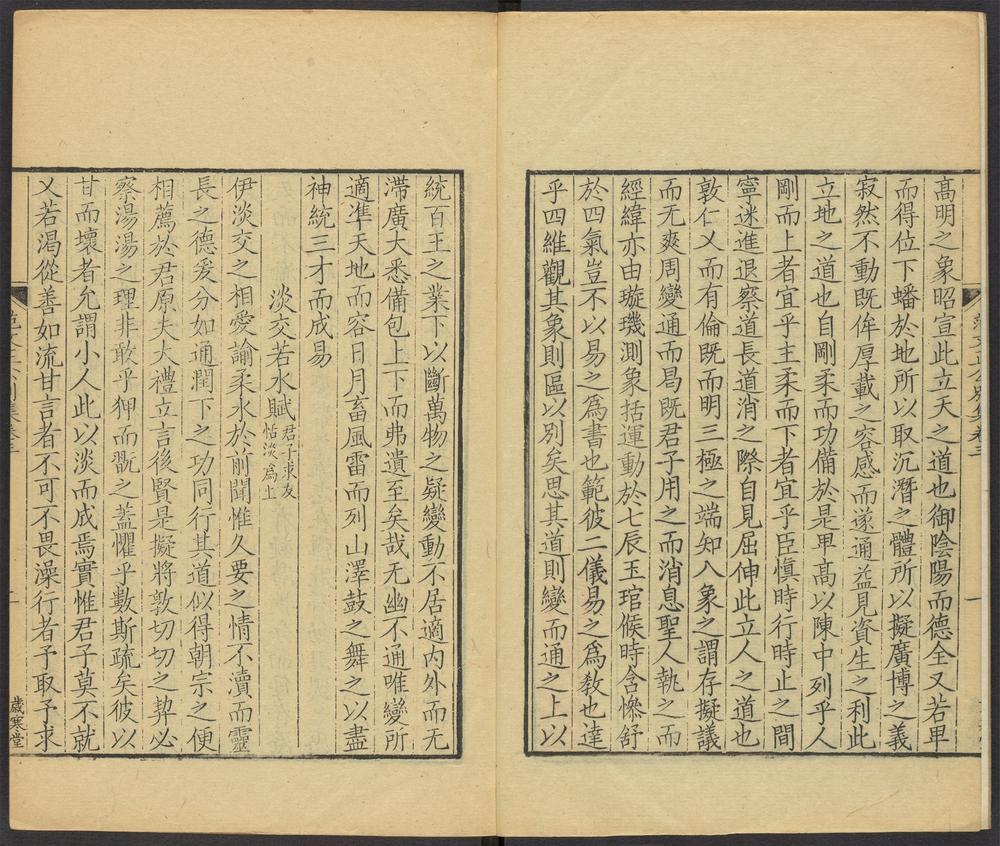 高明之象昭宣此立天之道也御陰陽而德全又若卑
而得位下蟠於地所以取沉潛之體所以擬廣博之義
寂然不動既侔厚載之容感而遂通益見資生之利此
立地之道也自剛柔而功備於是卑髙以陳中列乎人
剛而上者宜乎主柔而下者宜乎臣慎時行時止之間
寧迷進退察道長道消之際自見屈伸此立人之道也
敦仁乂而有倫既而明三極之端知入象之謂存擬議
而无爽周變通而曷既君子用之而消息聖人執之而
經緯亦由璇璣測象括運動於七辰玉琯候時含慘舒
於四氣豈不以易之為書也範彼二儀易之為敎也達
乎四維觀其象則區以別矣思其道則變而通之上以
統百王之業下以斷萬物之疑變動不居適内外而无
滯廣大悉備包上下而弗遺至矣哉无幽不通唯變所
適準天地而容日月畜風雷而列山澤鼓之舞之以盡
神統三才而成易
淡交若水賦 君子求友
恬淡為上
伊淡交之相愛諭柔水於前聞惟久要之情不瀆而靈
長之德爰分如通潤下之功同行其道似得朝宗之便
相薦於君原夫大禮立言後賢是擬將敦切切之契必
察湯湯之理非敢乎狎而翫之蓋懼乎數斯疏矣彼以
甘而壞者允謂小人此以淡而成焉實惟君子莫不就
乂若渴從善如流甘言者不可不畏澡行者予取予求
歲寒堂